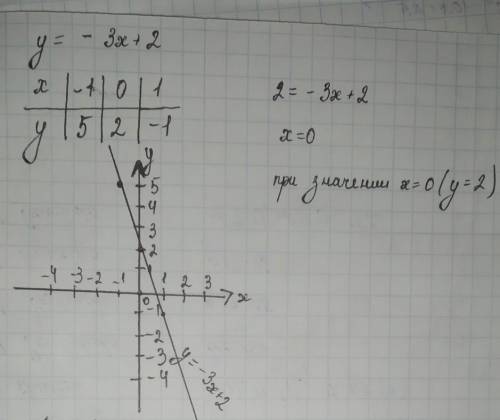 y = - 3x + 2
x | -1 | 0 | 1
y | 5 | 2 | -1
2 = - 3x + 2
x = 0
при значении x = 0 (y = 2)
y
5
4
3
2
1
-4 -3 -2 -1 0 1 2 3 x
-1
-2
-3
-4
y = -3x + 2